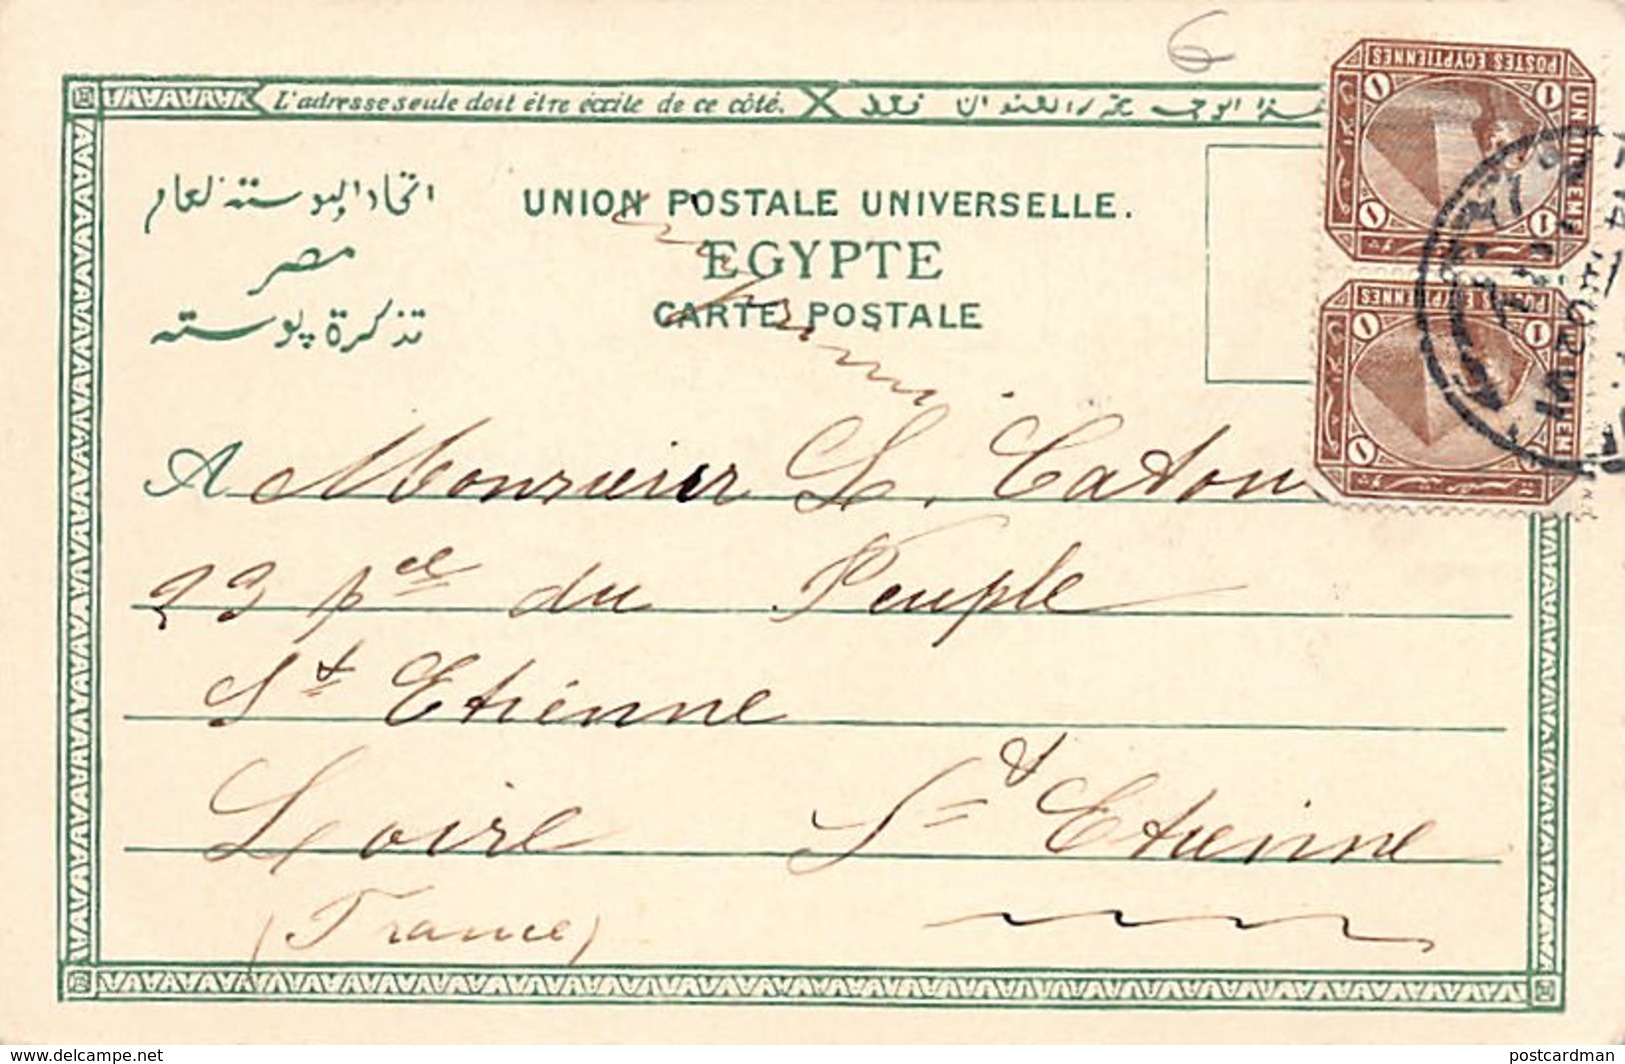 6
L'adresse seule doit être écrite de ce côté.
اتحاد البوسته العام
مصر
تذكرة پوسته
UNION POSTALE UNIVERSELLE.
EGYPTE
CARTE POSTALE
POSTES EGYPTIENNES
UN MILLIEME
1
1
A Monsieur L. Caton
23 pce du Peuple
St Etienne
Loire St Etienne
(France)
www.delcampe.net
postcardman